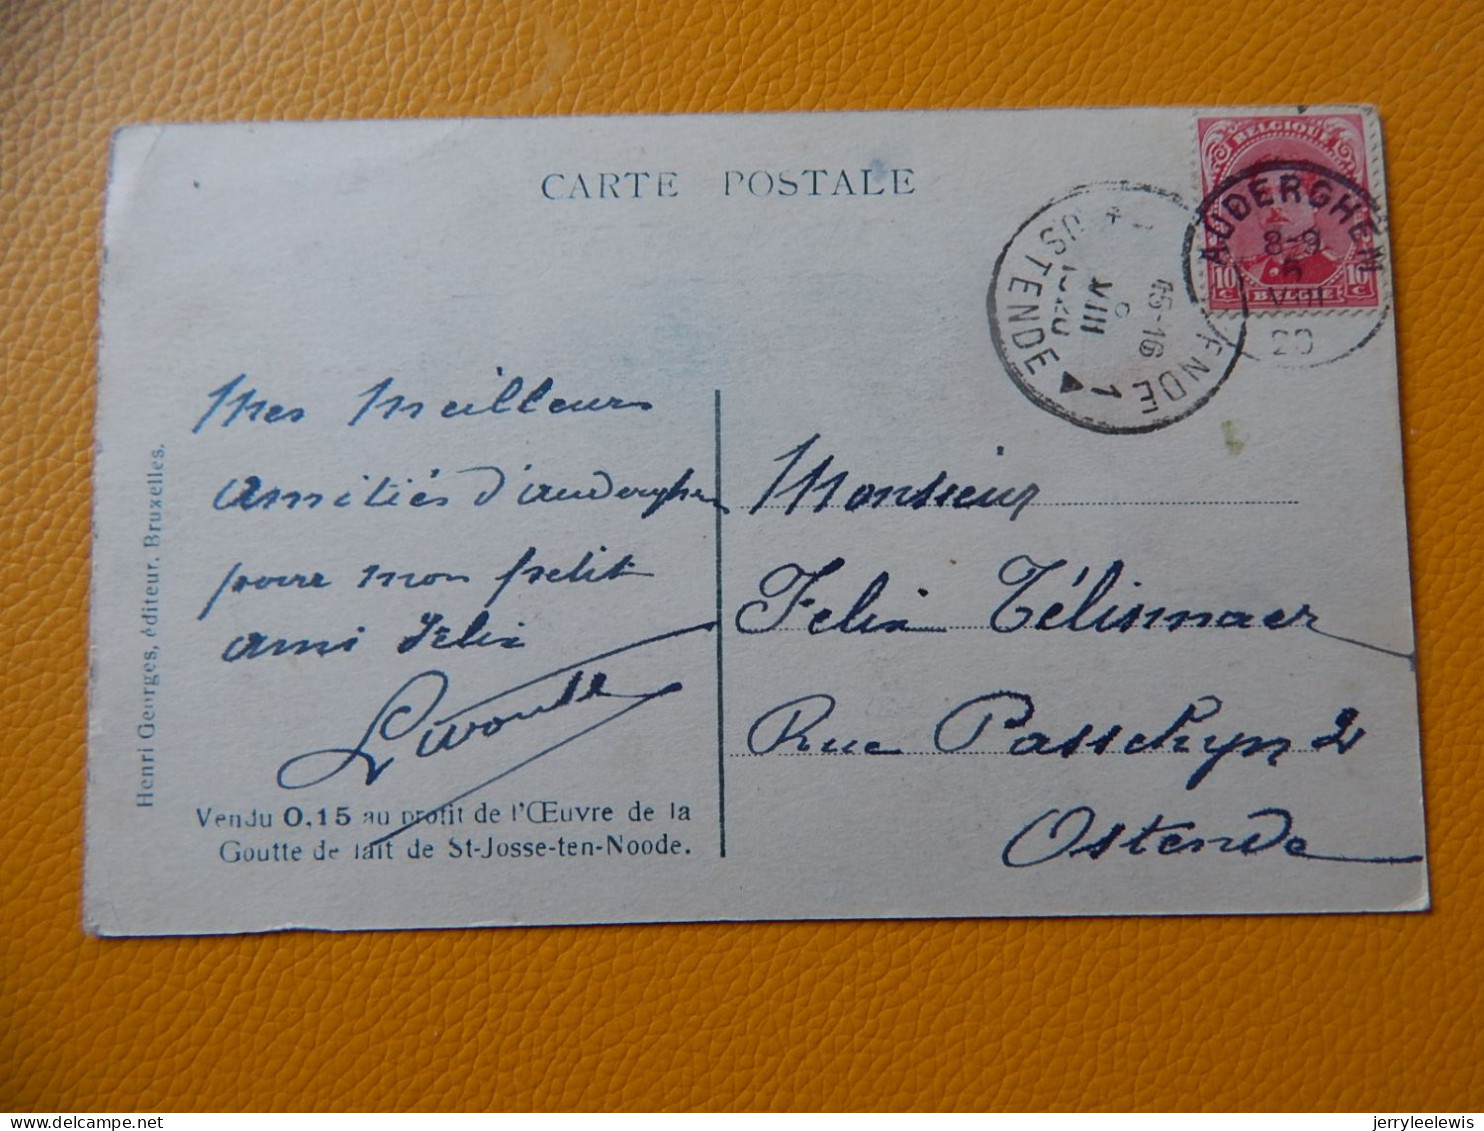 CARTE POSTALE
BELGIQUE
10 c BELGIË 10 c
AUDERGHEM
8-9
5
VIII
20
OSTENDE 1
OSTENDE
15-16
VIII
1920
Mes Meilleurs
amitiés d'auderghem
pour mon petit
ami Felix
Vendu 0,15 au profit de l'Œuvre de la
Goutte de lait de St-Josse-ten-Noode.
Henri Georges, éditeur, Bruxelles.
Monsieur
Felix Télinnaer
Rue Passchyn 2
Ostende
jerryleelewis